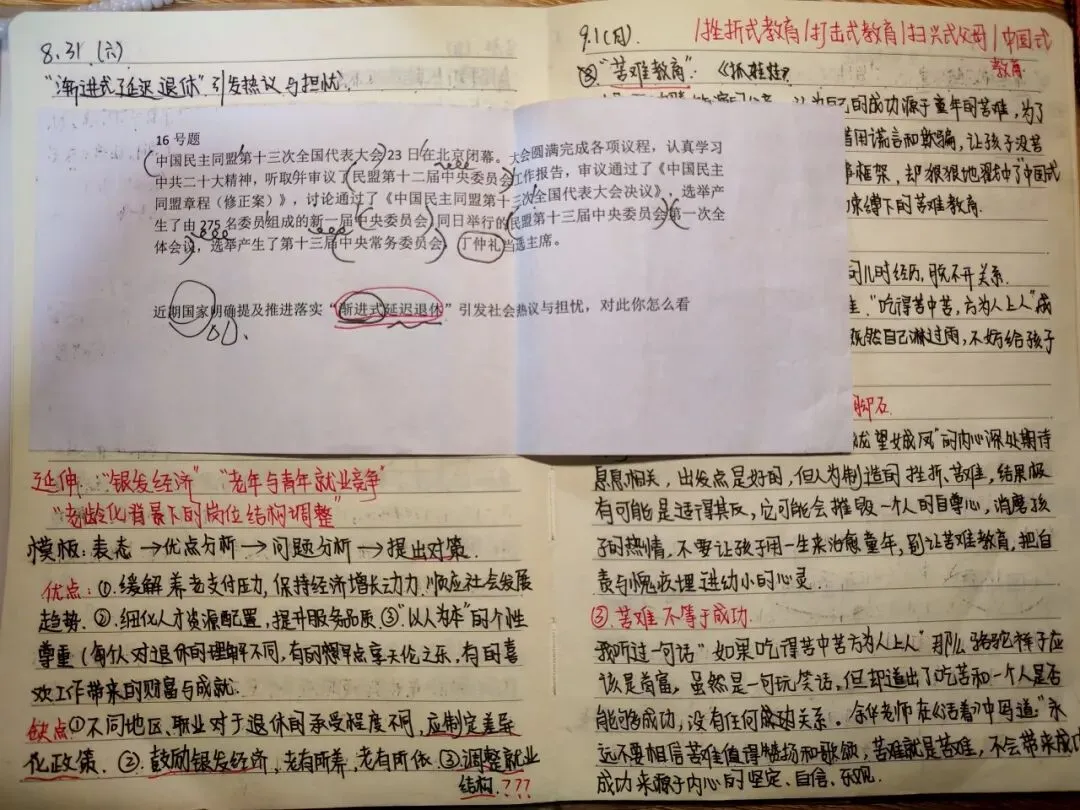 8.31 (六)
"渐进式延迟退休"引发热议与担忧
16 号题
中国民主同盟第十三次全国代表大会 23 日在北京闭幕。大会圆满完成各项议程，认真学习
中共二十大精神，听取并审议了民盟第十二届中央委员会工作报告，审议通过了《中国民主
同盟章程（修正案）》，讨论通过了《中国民主同盟第十三次全国代表大会决议》，选举产
生了由 275 名委员组成的新一届中央委员会。同日举行的民盟第十三届中央委员会第一次全
体会议，选举产生了第十三届中央常务委员会，丁仲礼当选主席。
近期国家明确提及推进落实"渐进式延迟退休"引发社会热议与担忧，对此你怎么看
延伸："银发经济" "老年与青年就业竞争"
"老龄化背景下的岗位结构调整"
模板：表态→优点分析→问题分析→提出对策.
优点：①.缓解养老支付压力,保持经济增长动力.顺应社会发展
趋势.②.细化人才资源配置,提升服务品质.③."以人为本"的个性
尊重(每个人对退休的理解不同,有的想早点享天伦之乐,有的喜
欢工作带来的财富与成就.
缺点①不同地区、职业对于退休的承受程度不同,应制定差异
化政策.②.鼓励银发经济,老有所养,老有所依.③.调整就业
结构.???
9.1(日). |挫折式教育|打击式教育|扫兴式父母|中国式
教育
"苦难教育". 《抓娃娃》
认为自己的成功源于童年的苦难,为了
用谎言和欺骗,让孩子没苦
事框架,却狠狠地
束缚下的苦难教育.
儿时经历,脱不开关系.
"吃得苦中苦,方为人上人"成
既然自己淋过雨,不妨给孩子
脚石.
成龙望女成凤"的内心深处期待
息息相关,出发点是好的,但人为制造的挫折、苦难,结果极
有可能是适得其反,它可能会摧毁一个人的自尊心,消磨孩
子的热情,不要让孩子用一生来治愈童年,别让苦难教育,把自
责与愧疚埋进幼小的心灵.
③.苦难不等于成功.
我听过一句话"如果吃得苦中苦方为人上人"那么骆驼祥子应
该是首富,虽然是一句玩笑话,但却道出了吃苦和一个人是否
能够成功,没有任何成功关系.余华老师在《活着》中写道:"永
远不要相信苦难值得赞扬和歌颂,苦难就是苦难,不会带来成功
成功来源于内心的坚定、自信、乐观.